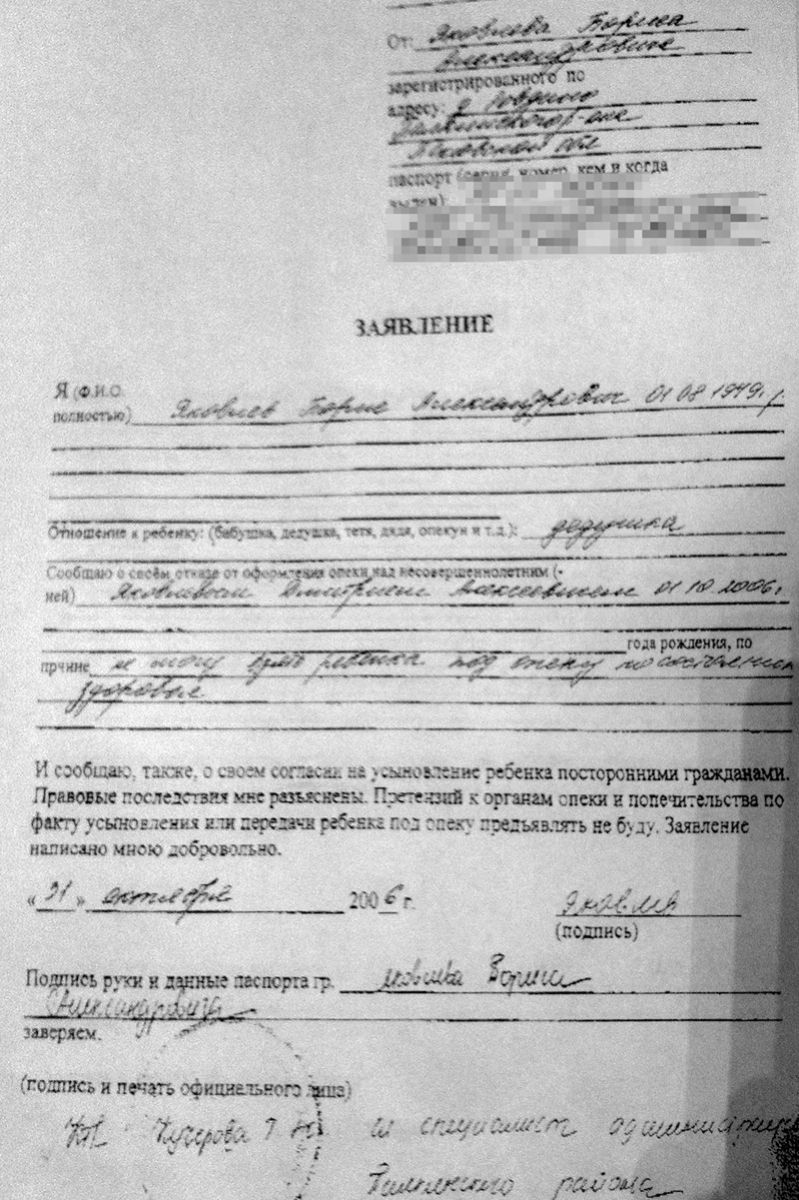 От: Яковлева Бориса
Александровича
зарегистрированного по
адресу: д
Псковской обл
паспорт (серия, номер, кем и когда
выдан)
ЗАЯВЛЕНИЕ
Я (Ф.И.О.
полностью) Яковлев Борис Александрович 01 08 1949 г.
Отношение к ребенку: (бабушка, дедушка, тетя, дядя, опекун и т.д.): дедушка
Сообщаю о своём отказе от оформления опеки над несовершеннолетним (-
ней) Яковлевым Дмитрием Алексеевичем 01 10 2006
года рождения, по
причине не могу взять ребенка под опеку по состоянию
здоровья
И сообщаю, также, о своем согласии на усыновление ребенка посторонними гражданами.
Правовые последствия мне разъяснены. Претензий к органам опеки и попечительства по
факту усыновления или передачи ребенка под опеку предъявлять не буду. Заявление
написано мною добровольно.
«31» октября 2006 г. Яковлев
(подпись)
Подпись руки и данные паспорта гр. Яковлева Бориса
Александровича
заверяем.
(подпись и печать официального лица)
Кучерова Т Н гл специалист
района